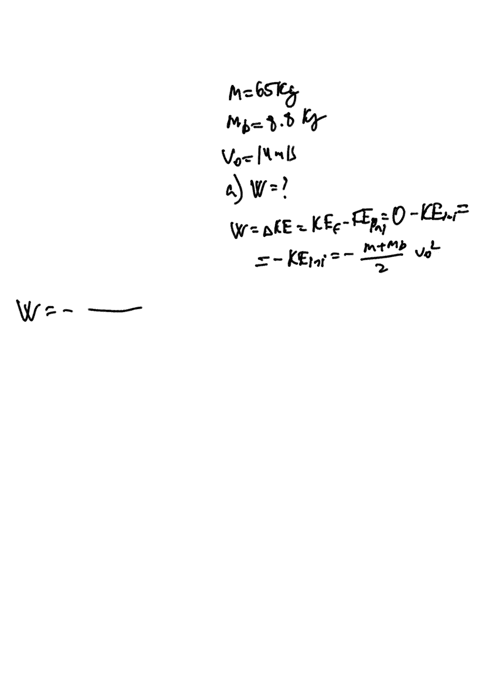 M=65Kg
Mb=8.8 Kg
V₀=14 m/s
a) W=?
W=ΔKE=KEf-KEini=0-KEini=
=-KEini=-(m+mb)/2 v₀²
W=-